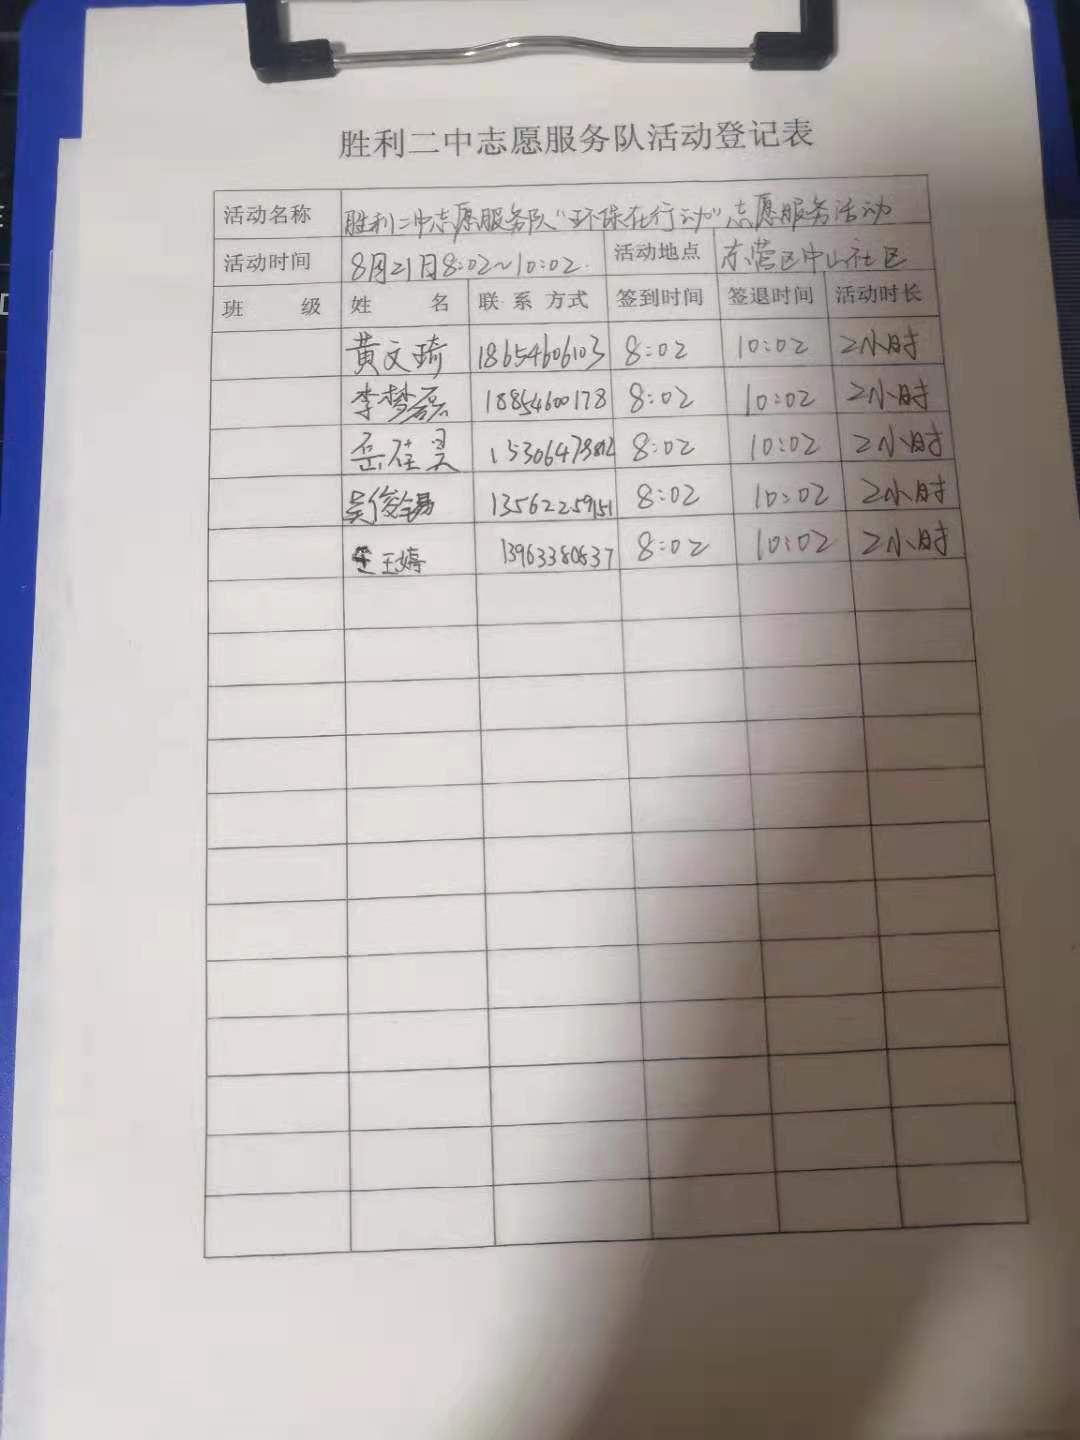 胜利二中志愿服务队活动登记表
活动名称 胜利二中志愿服务队“环保在行动”志愿服务活动
活动时间 8月21日8:02~10:02. 活动地点 东营区中山社区
班 级 姓 名 联系方式 签到时间 签退时间 活动时长
黄文琦 18654606103 8:02 10:02 2小时
李梦磊 18854600178 8:02 10:02 2小时
岳佳昊 8:02 10:02 2小时
吴俊锡 13562259151 8:02 10:02 2小时
王婷 13963380837 8:02 10:02 2小时